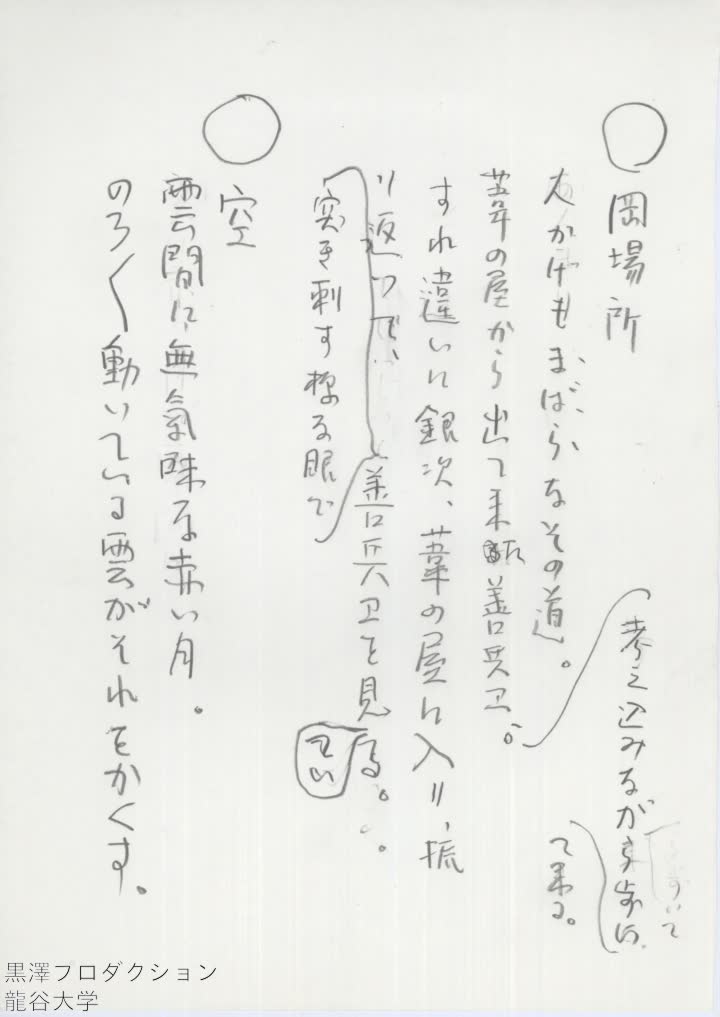 岡場所
人かげもまばらなその道。
葦の屋から出て来た善兵卫。
考え込みながら歩い
て来る。
すれ違いに銀次、葦の屋に入り、振
り返って、善兵卫を見る。
突き刺す様な眼で
空
雲間に無気味な赤い月。
のろ〳〵動いている雲がそれをかくす。
黒澤プロダクション
龍谷大学